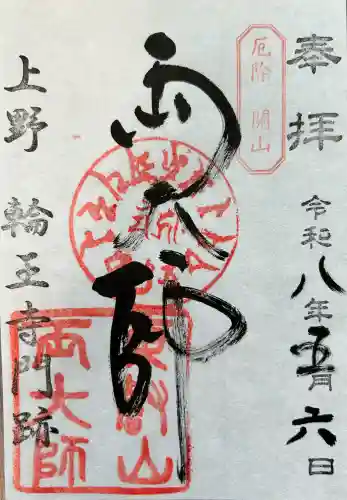 奉拝
令和八年五月六日
厄除 開山
両大師
上野 輪王寺門跡
東叡山
両大師